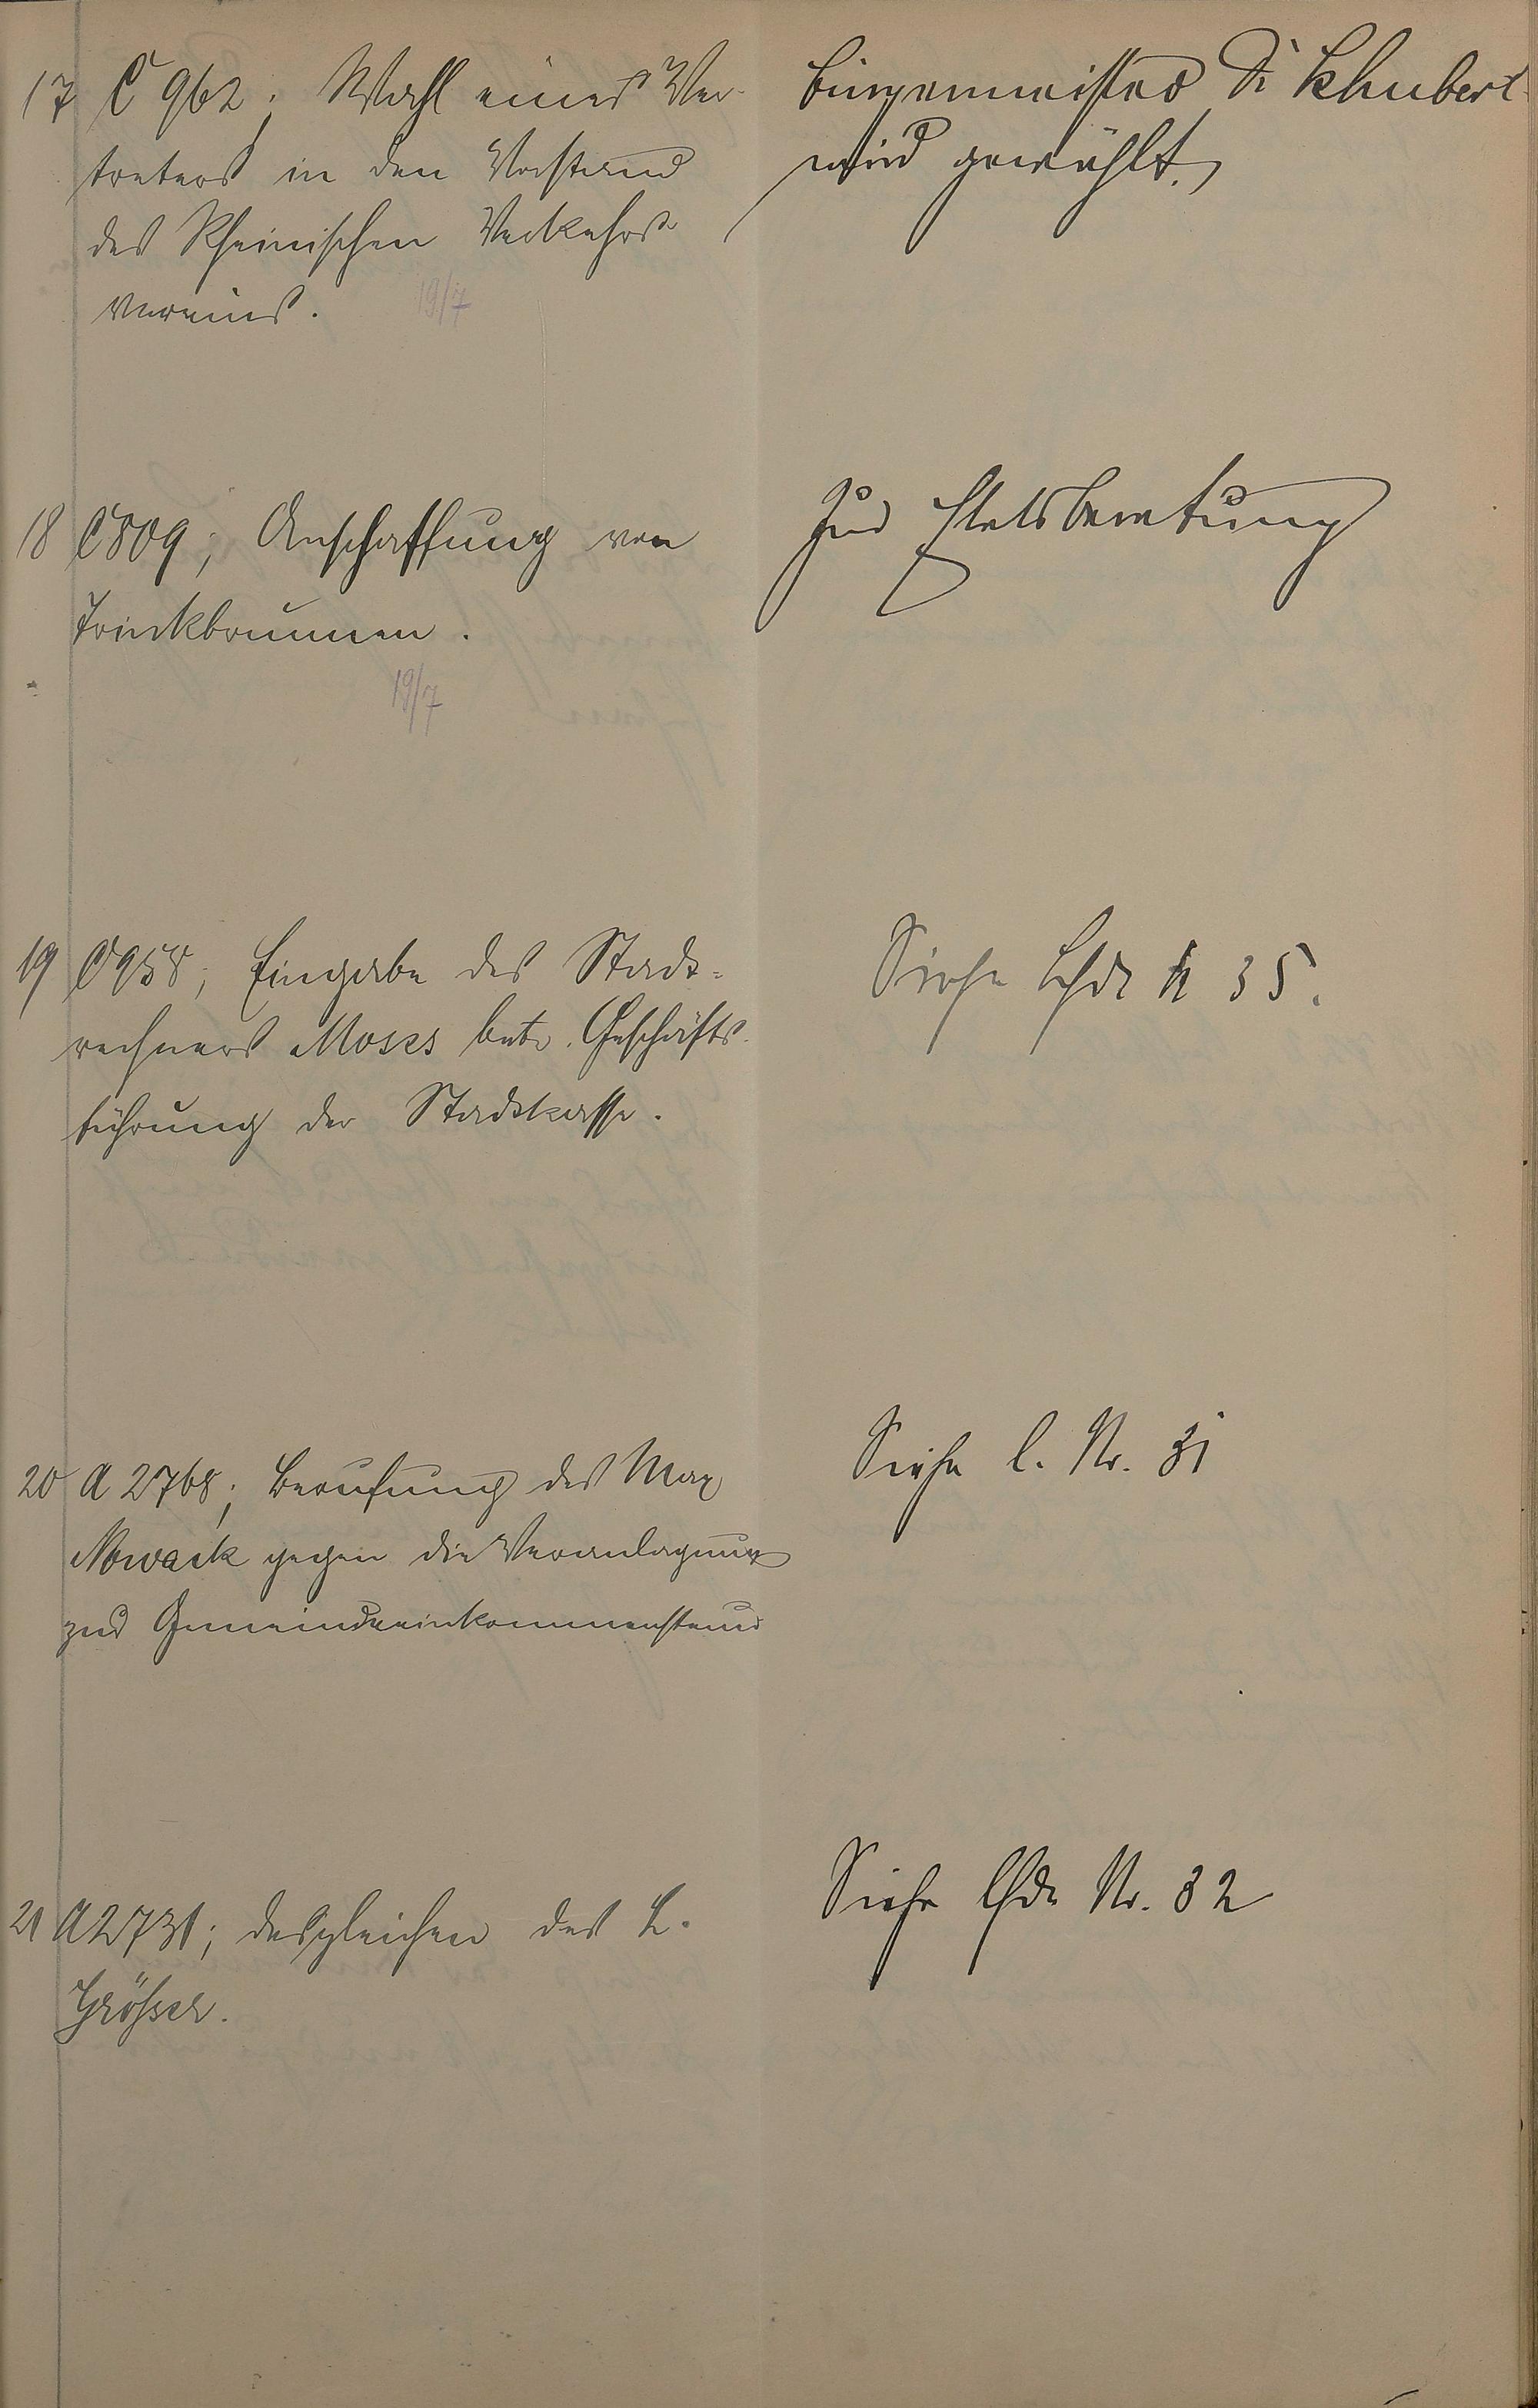 17 C 962; Wahl eines Ver-
treters in den Vorstand
des Rheinischen Verkehrs-
vereins. 19/7
Bürgermeister Dr Schubert
wird gewählt.
18 C 809; Anschaffung von
Trinkbrunnen.
19/7
Zur Etatsberatung
19 C 958; Eingabe des Stadt-
rechners Moses betr. Geschäfts-
führung der Stadtkasse.
Siehe Lfde N 35.
20 A 2768; Berufung des Max
Nowack gegen die Veranlagung
zur Gemeindeeinkommensteuer
Siehe l. Nr. 31
21 A 2731; desgleichen des L.
Größer.
Siehe lfde Nr. 32